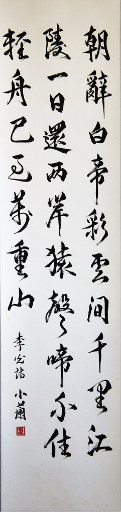 朝辭白帝彩雲間千里江
陵一日還兩岸猿聲啼不住
輕舟已過萬重山
李白詩 小蘭